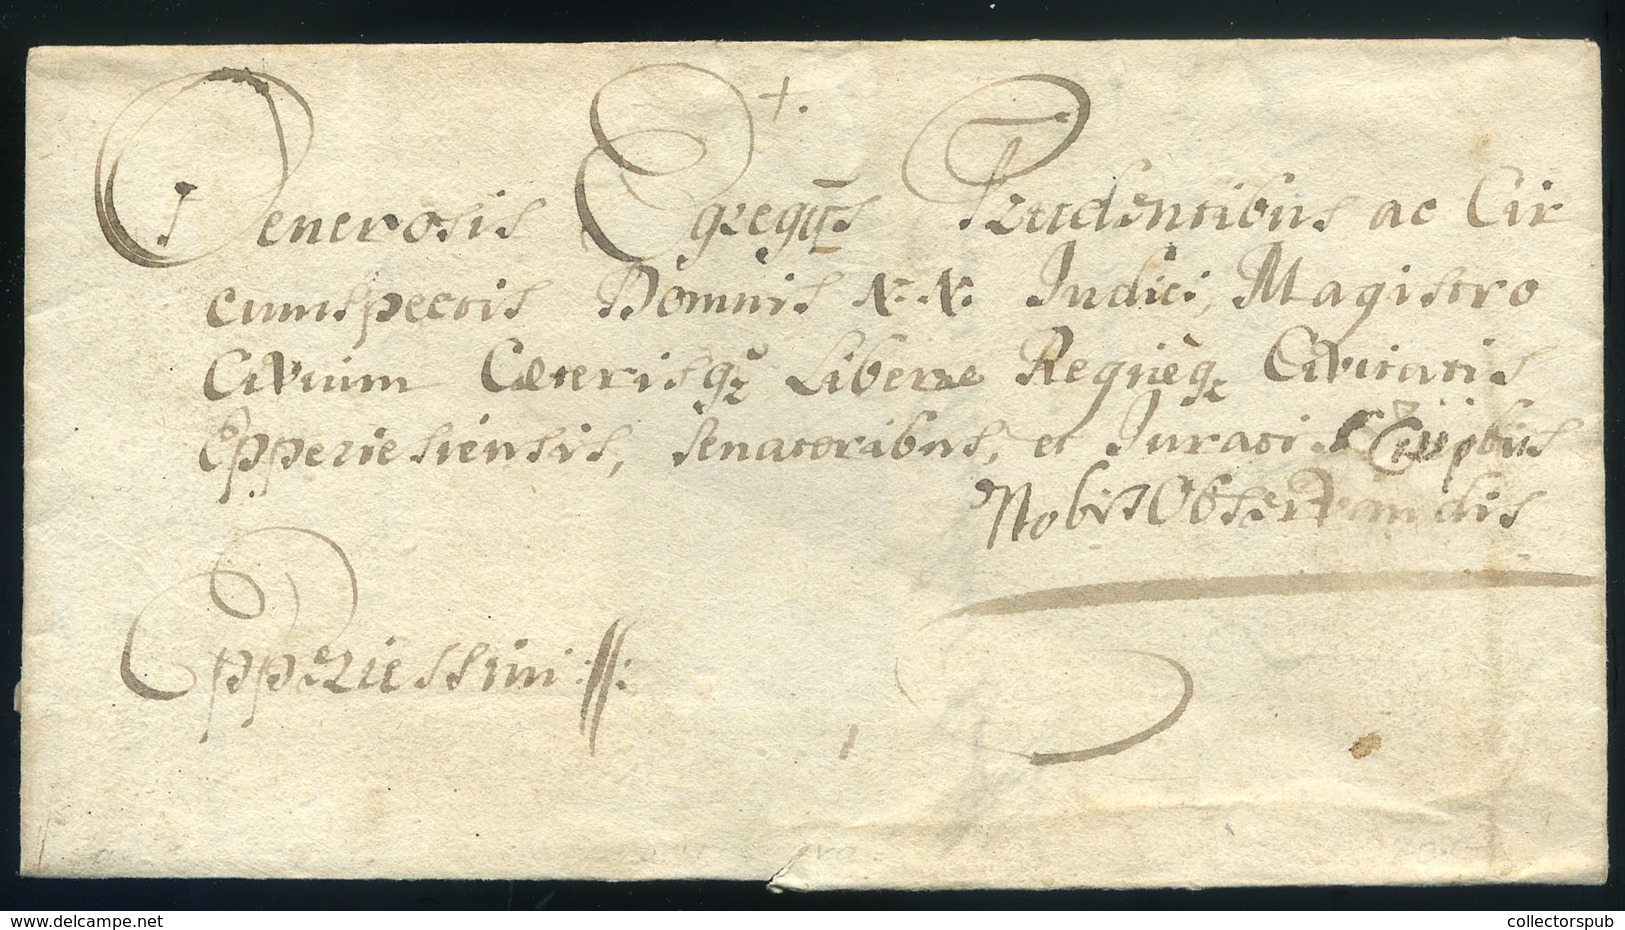 +.
Generosis Egregijs Prudentibus ac Cir
cumspectis Dominis N: N: Judici, Magistro
Civium Cæterisq₃ Liberæ Regiæq₃ Civitatis
Epperiesiensis, Senatoribus, et Juratis Civibus
Nobis Observandis
Epperiessini
www.delcampe.net
collectorspub